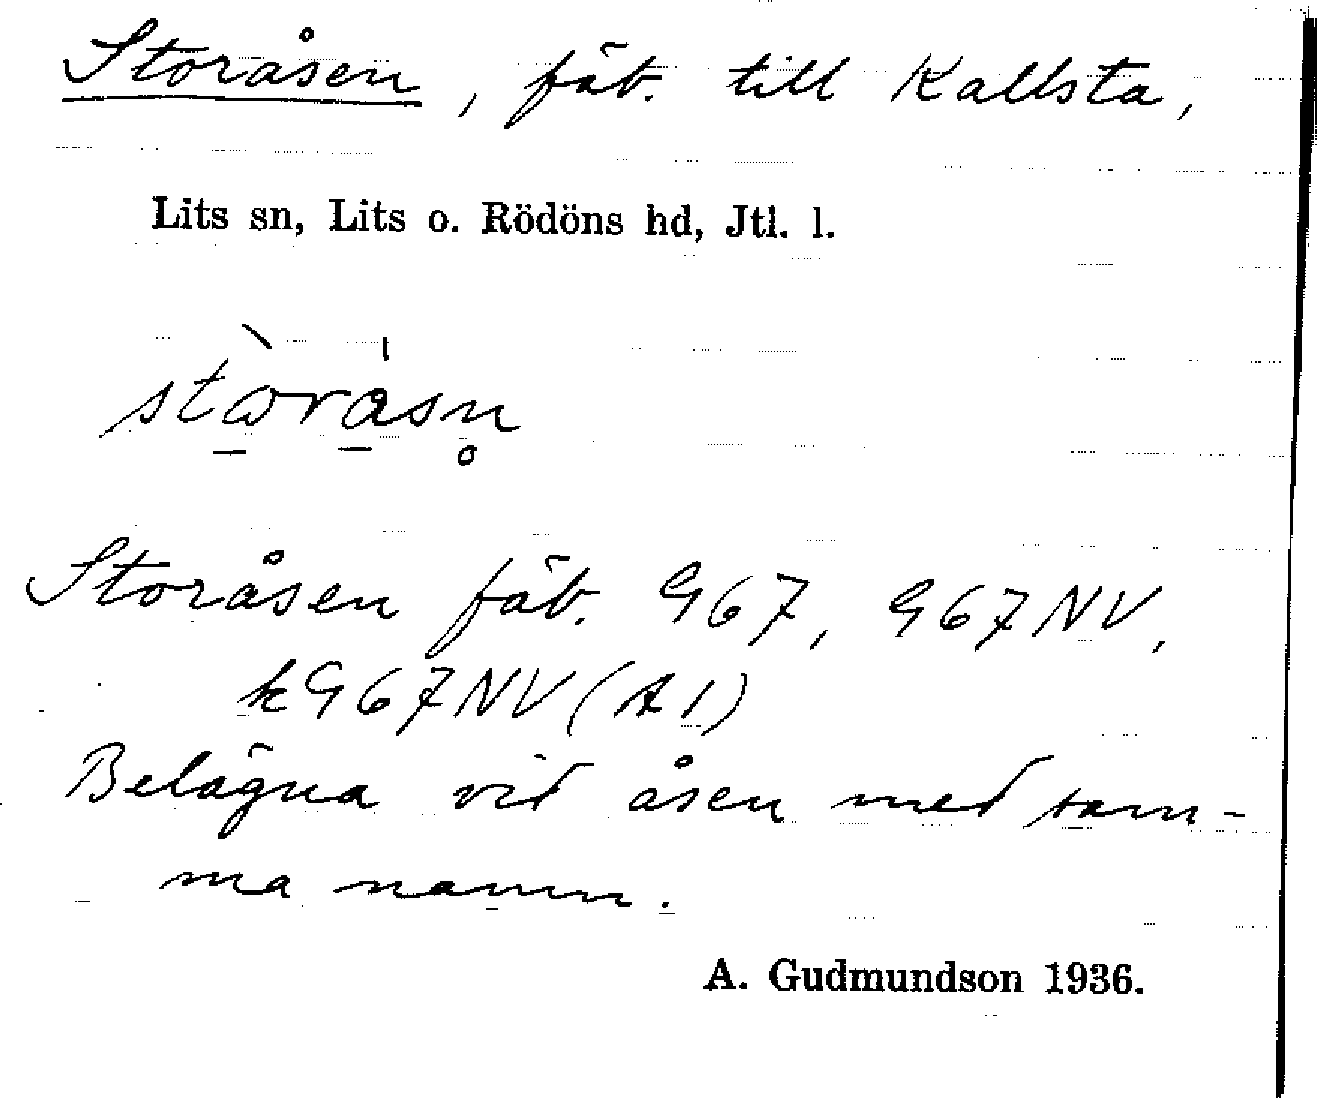 Storåsen, fäb. till Kallsta,
Lits sn, Lits o. Rödöns hd, Jtl. l.
Storåsen fäb. G67, G67NV,
kG67NV (A1)
Belägna vid åsen med sam-
ma namn.
A. Gudmundson 1936.